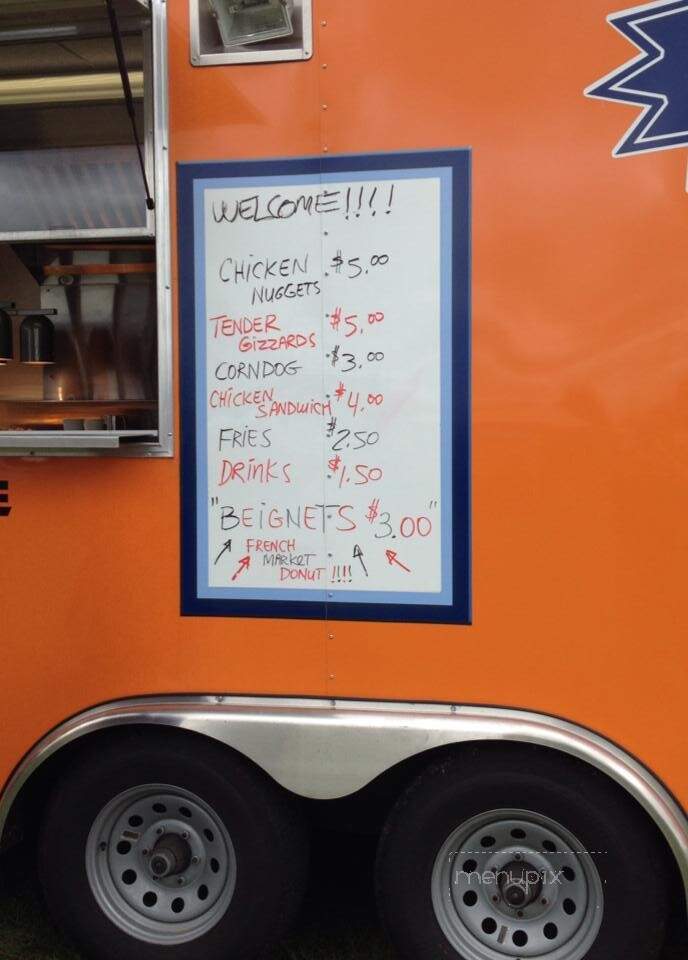 WELCOME!!!!
CHICKEN $5.00
NUGGETS
TENDER $5.00
GIZZARDS
CORNDOG $3.00
CHICKEN $4.00
SANDWICH
FRIES $2.50
DRINKS $1.50
"BEIGNETS $3.00"
FRENCH
MARKET
DONUT !!!!
E
menupix